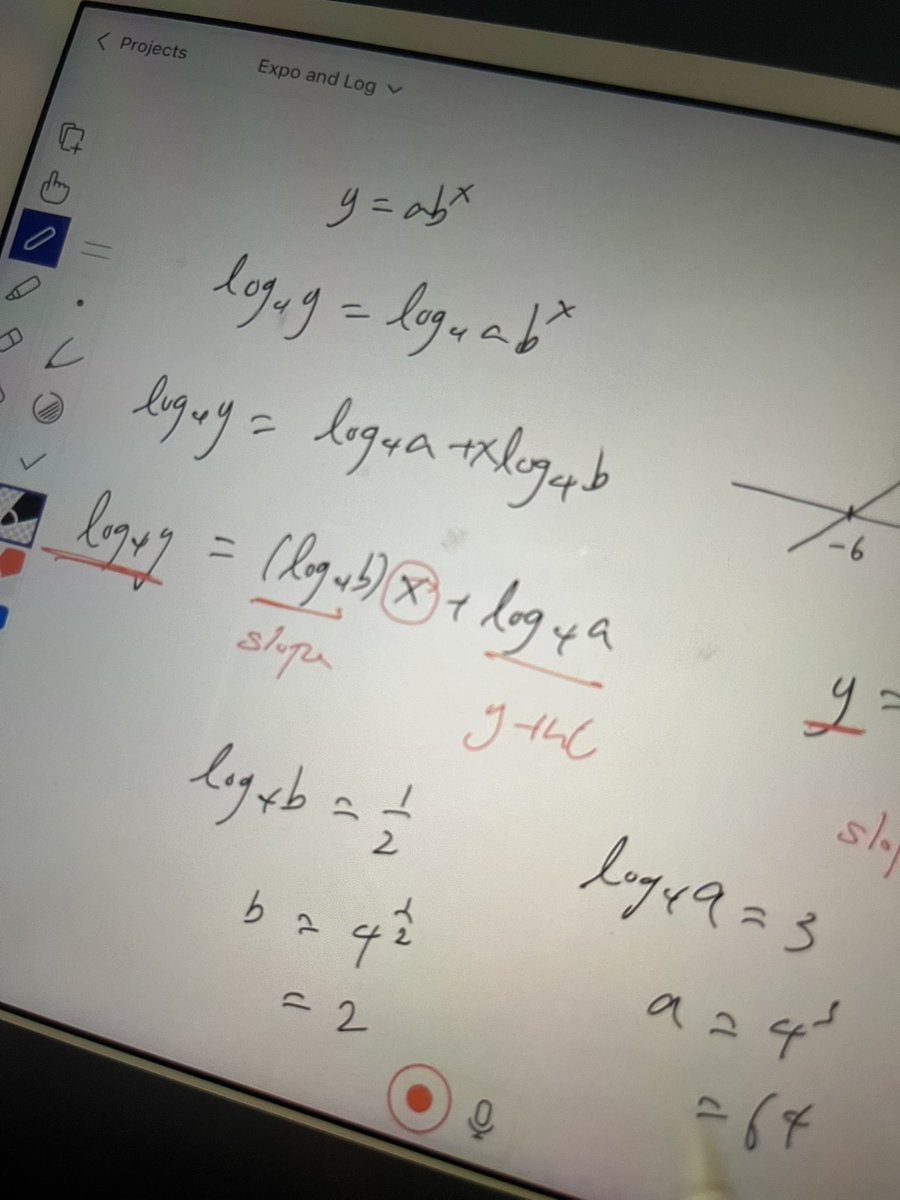 Projects
Expo and Log
y = ab^x
log₄y = log₄ab^x
log₄y = log₄a + xlog₄b
-6
log₄y = (log₄b)x + log₄a
slope
y =
log₄b = 1/2
b = 4^1/2
= 2
log₄a = 3
a = 4³
= 64